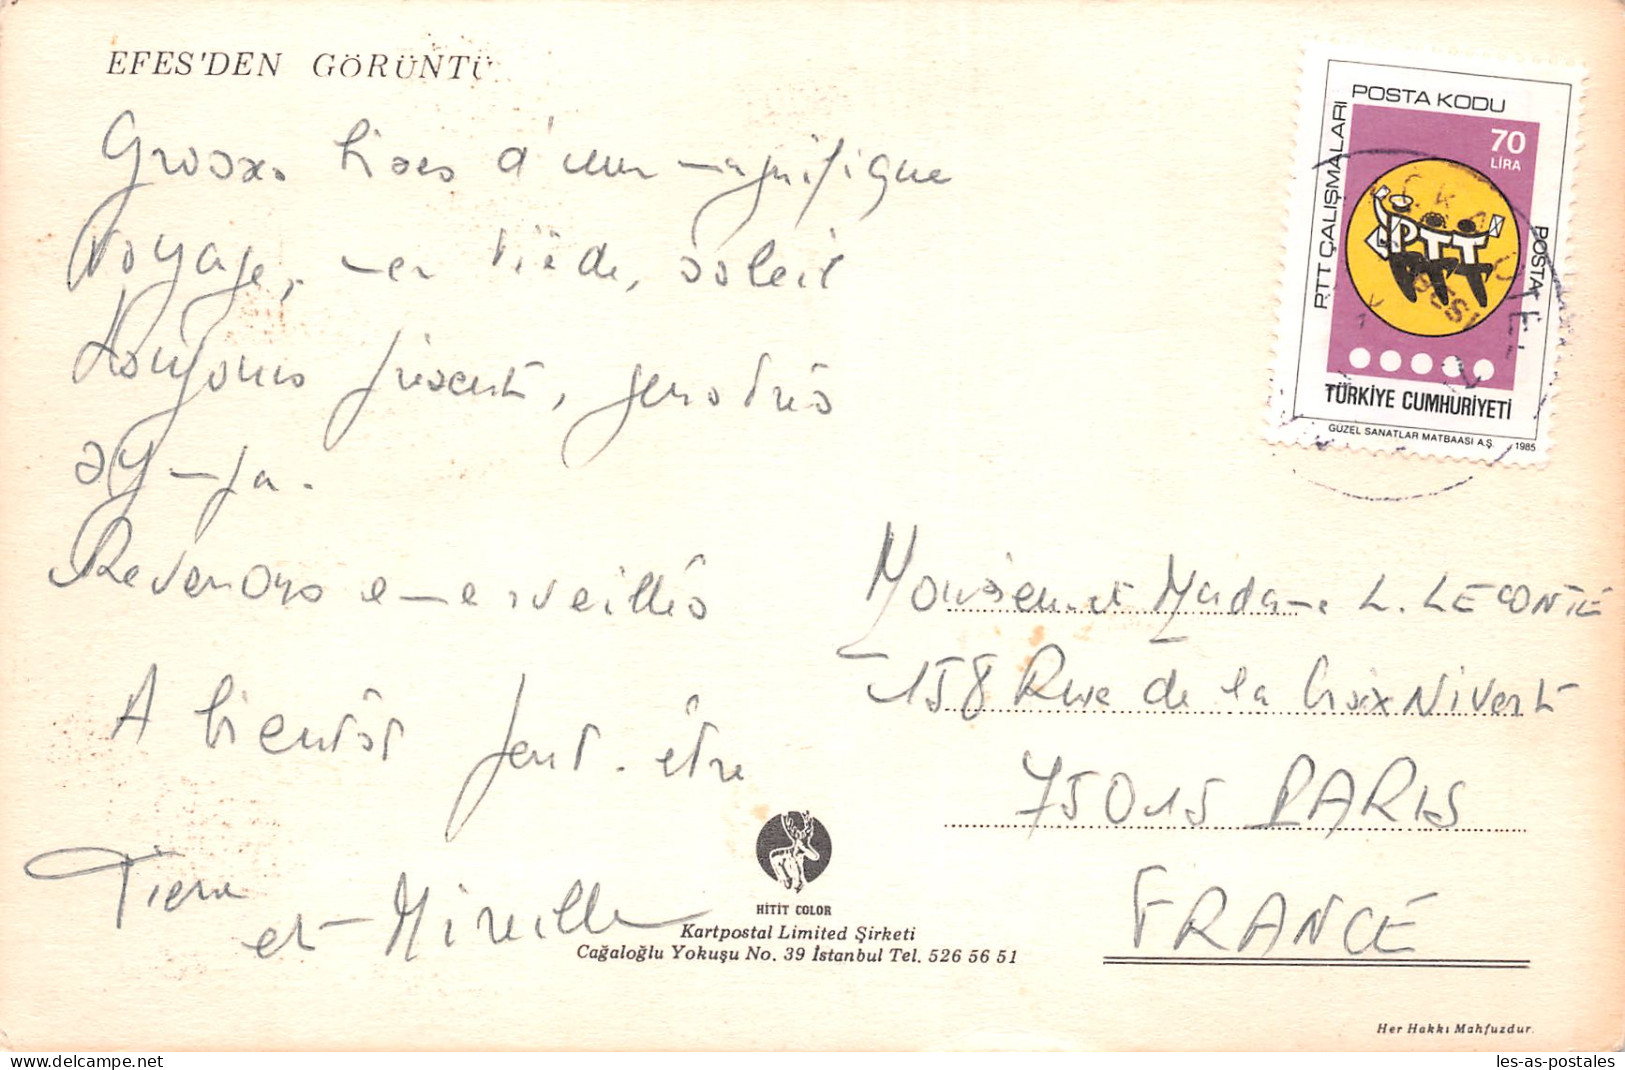 EFES'DEN GÖRÜNTÜ
Grosses bises d'un magnifique
voyage, mer tiède, soleil
toujours présent, gens très
sympa.
Revenons emerveillés
A bientôt peut-être
Pierre
et Mireille
POSTA KODU
PTT ÇALIŞMALARI
70
LİRA
PTT
POSTA
TÜRKİYE CUMHURİYETİ
GÜZEL SANATLAR MATBAASI A.Ş. 1985
Monsieur et Madame L. LECONTE
158 Rue de la Croix Nivert
75015 PARIS
FRANCE
HİTİT COLOR
Kartpostal Limited Şirketi
Cağaloğlu Yokuşu No. 39 İstanbul Tel. 526 56 51
Her Hakkı Mahfuzdur.
les-as-postales